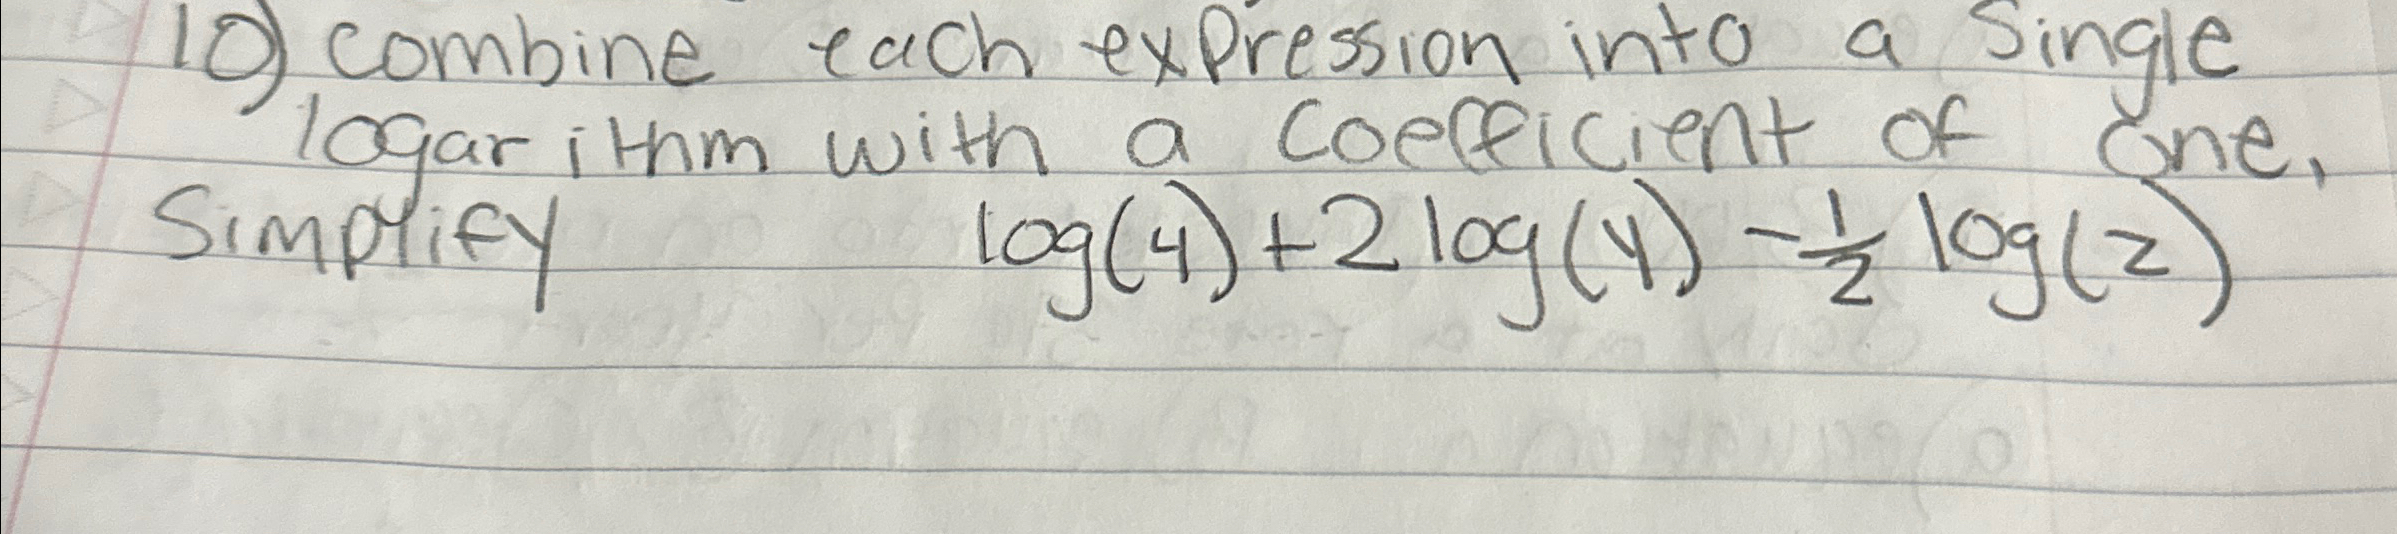 10) combine each expression into a single
logarithm with a coefficient of one.
Simplify log(4)+2log(y)-½log(z)